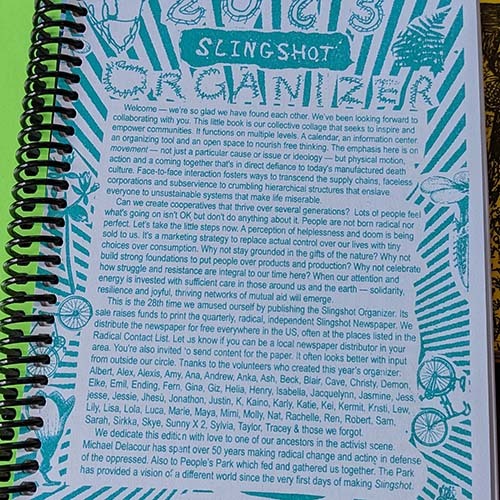 2023
SLINGSHOT
ORGANIZER
Welcome — we're so glad we have found each other. We've been looking forward to
collaborating with you. This little book is our collective collage that seeks to inspire and
empower communities. It functions on multiple levels. A calendar, an information center,
an organizing tool and an open space to nourish free thinking. The emphasis here is on
movement — not just a particular cause or issue or ideology — but physical motion,
action and a coming together that's in direct defiance to today's manufactured death
culture. Face-to-face interaction fosters ways to transcend the supply chains, faceless
corporations and subservience to crumbling hierarchical structures that enslave
everyone to unsustainable systems that make life miserable.
Can we create cooperatives that thrive over several generations? Lots of people feel
what's going on isn't OK but don't do anything about it. People are not born radical nor
perfect. Let's take the little steps now. A perception of helplessness and doom is being
sold to us. It's a marketing strategy to replace actual control over our lives with tiny
choices over consumption. Why not stay grounded in the gifts of the nature? Why not
build strong foundations to put people over products and production? Why not celebrate
how struggle and resistance are integral to our time here? When our attention and
energy is invested with sufficient care in those around us and the earth — solidarity,
resilience and joyful, thriving networks of mutual aid will emerge.
This is the 28th time we amused ourself by publishing the Slingshot Organizer. Its
sale raises funds to print the quarterly, radical, independent Slingshot Newspaper. We
distribute the newspaper for free everywhere in the US, often at the places listed in the
Radical Contact List. Let us know if you can be a local newspaper distributor in your
area. You're also invited to send content for the paper. It often looks better with input
from outside our circle. Thanks to the volunteers who created this year's organizer:
Albert, Alex, Alexis, Amy, Ana, Andrew, Anka, Ash, Beck, Blair, Cave, Christy, Demon,
Elke, Emil, Ending, Fern, Gina, Giz, Helia, Henry, Isabella, Jacquelynn, Jasmine, Jess,
jesse, Jessie, Jhesú, Jonathon, Justin, K, Kaino, Karly, Katie, Kei, Kermit, Kristi, Lew,
Lily, Lisa, Lola, Luca, Marie, Maya, Mimi, Molly, Nat, Rachelle, Ren, Robert, Sam,
Sarah, Sirkka, Skye, Sunny X 2, Sylvia, Taylor, Tracey & those we forgot.
We dedicate this edition with love to one of our ancestors in the activist scene.
Michael Delacour has spent over 50 years making radical change and acting in defense
of the oppressed. Also to People's Park which fed and gathered us together. The Park
has provided a vision of a different world since the very first days of making Slingshot.